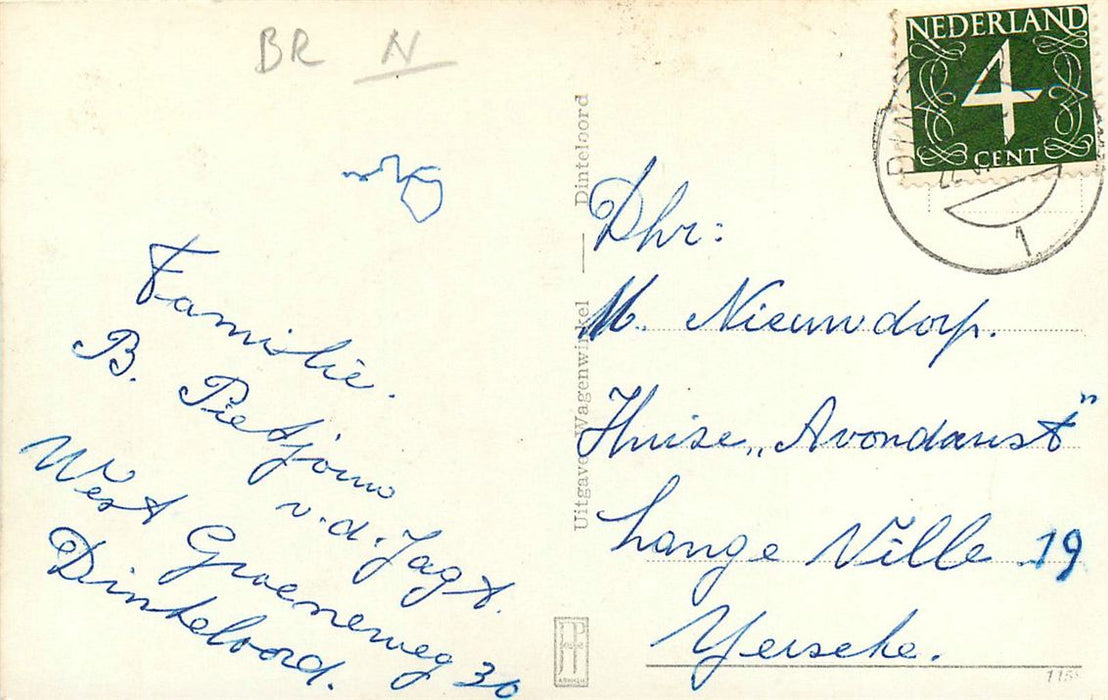 BR N
Familie.
B. Pietjouw
v.d. Jagt.
West Groeneweg 30
Dinteloord.
Uitgave Wagenwinkel — Dinteloord
NEDERLAND
4
CENT
1
Dhr:
M. Nieuwdorp.
Huize „Avondrust"
Lange Ville 19
Yerseke.